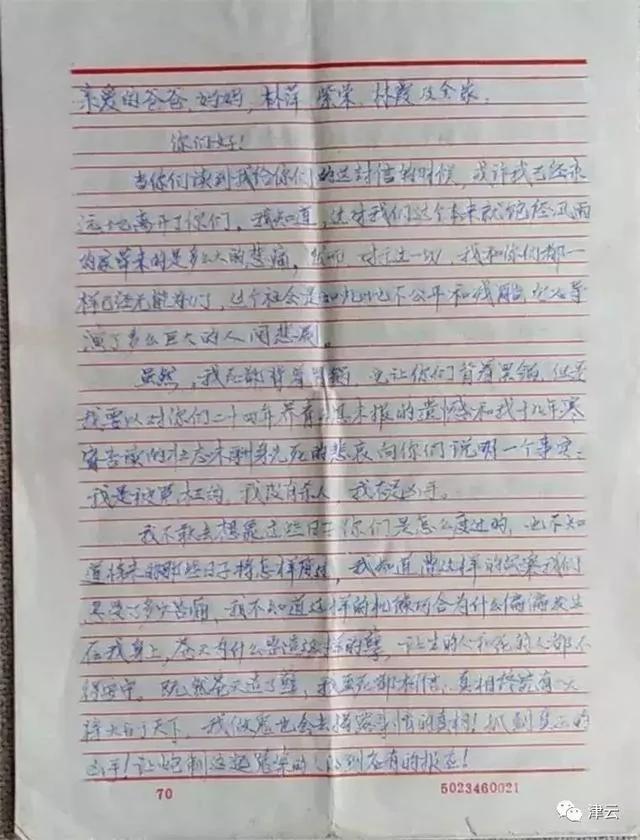 亲爱的爸爸、妈妈、林萍、紫荣、林霞及全家：
你们好！
当你们读到我给你们的这封信的时候，或许我已经永
远地离开了你们。我知道，这对我们这个本来就饱经风雨
的家带来的是多么大的悲痛，然而，对于这一切，我和你们都一
样已经无能为力，这个社会是如此地不公平和残酷，它
演了多么巨大的人间悲剧。
虽然，我死都背着黑锅，也让你们背着黑锅，但是
我要以对你们二十四年养育之恩未报的遗憾和我十几年寒
窗苦读的壮志未酬身先死的悲哀向你们说明一个事实：
我是被冤枉的，我没有杀人，我不是凶手。
我不敢去想象这些日子你们是怎么度过的，也不知
道将来的那些日子将怎样度过，我知道遭这样的冤案我们
忍受了多少苦痛，我不知道这样的机缘巧合为什么偏偏发生
在我身上，苍天为什么要造这样的孽，让生的人和死的人都不
得安宁。既然苍天造了孽，我至死都相信，真相终就有一天
得大白于天下，我做鬼也会去 事情的真相！抓到真正的
凶手！让炮制这起冤案的人得到应有的报应！
70
5023460021
津云